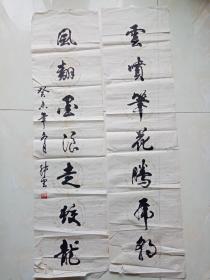 雲噴筆花騰虎豹
風翻墨浪走蛟龍
癸未年